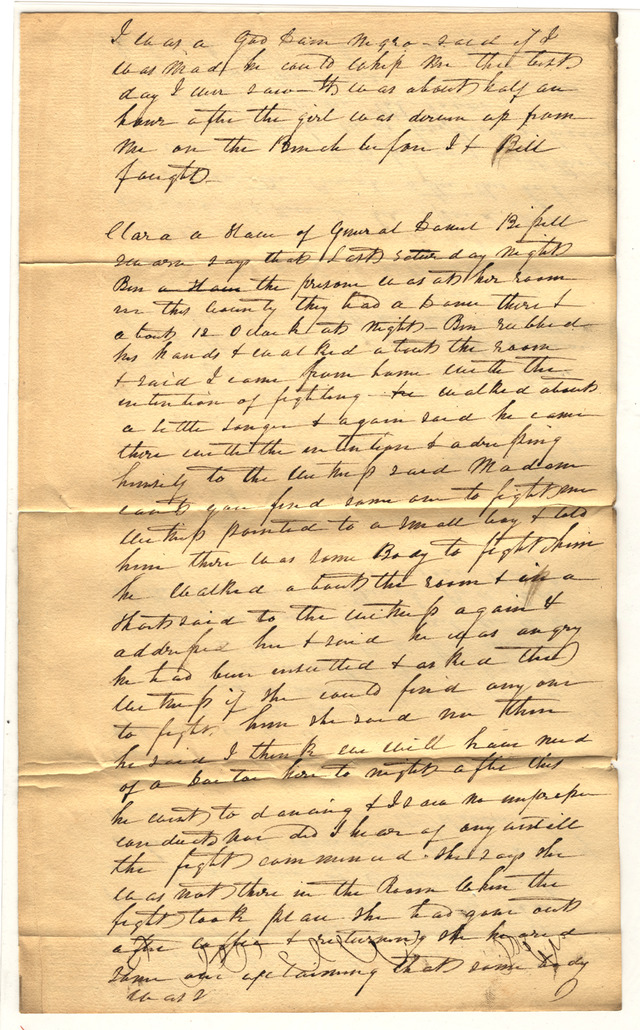 I was a God Damn Negro - said if I
was mad he could whip me the best
day I ever saw - it was about half an
hour after the girl was drawn up from
me on the Bench before I & Bill
fought -
Clara a Slave of General Daniel Bissell
sworn says that last Saturday night
Ben a Slave the prisoner was at her room
in this County they had a Dance there &
about 12 O Clock at night - Ben rubbed
his hands & walked about the room
& said I came from home with the
intention of fighting - He walked about
a little longer & again said he came
there with the intention & adressing
himself to the witness said Madam
can't you find some one to fight me
witness pointed to a small boy & told
him there was some Body to fight him
he walked about the room & in a
short said to the witness again &
addressed her & said he was angry
he had been insulted & asked the
witness if she could find any one
to fight him she said no then
he said I think we will have need
of a Doctor here to night after this
he went to dancing & I saw no improper
conduct nor did I hear of any until
the fight commenced - she says she
was not there in the Room when the
fight took place she had gone out
after coffee & returning she heard
some one exclaiming that some body
was